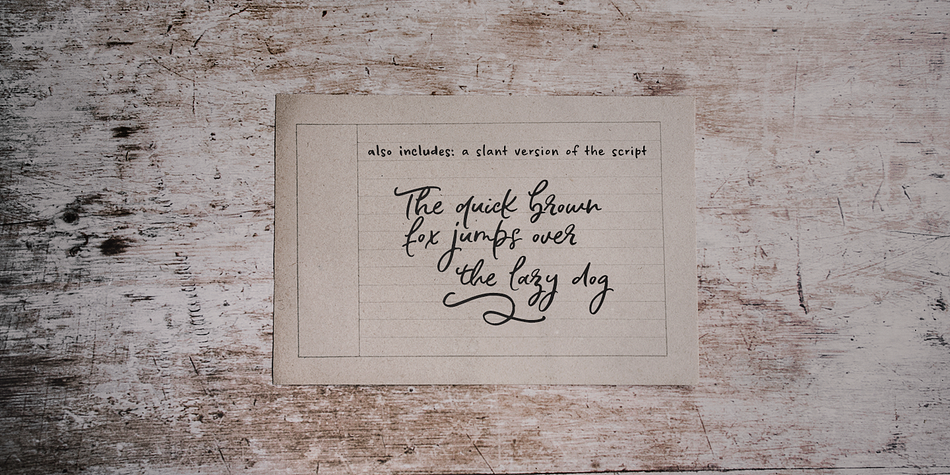 also includes: a slant version of the script
The quick brown
fox jumps over
the lazy dog